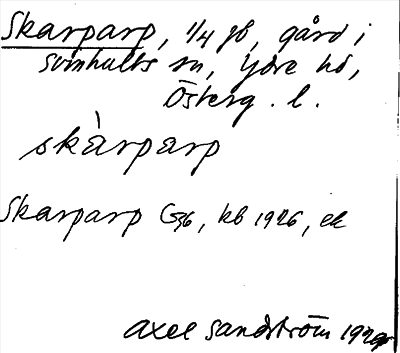 Skarparp, 1/4 gb, gård i
Svinhults sn, Ydre hd,
Österg. l.
skàrparp
Skarparp G36, kb 1926, ek
Axel Sandström